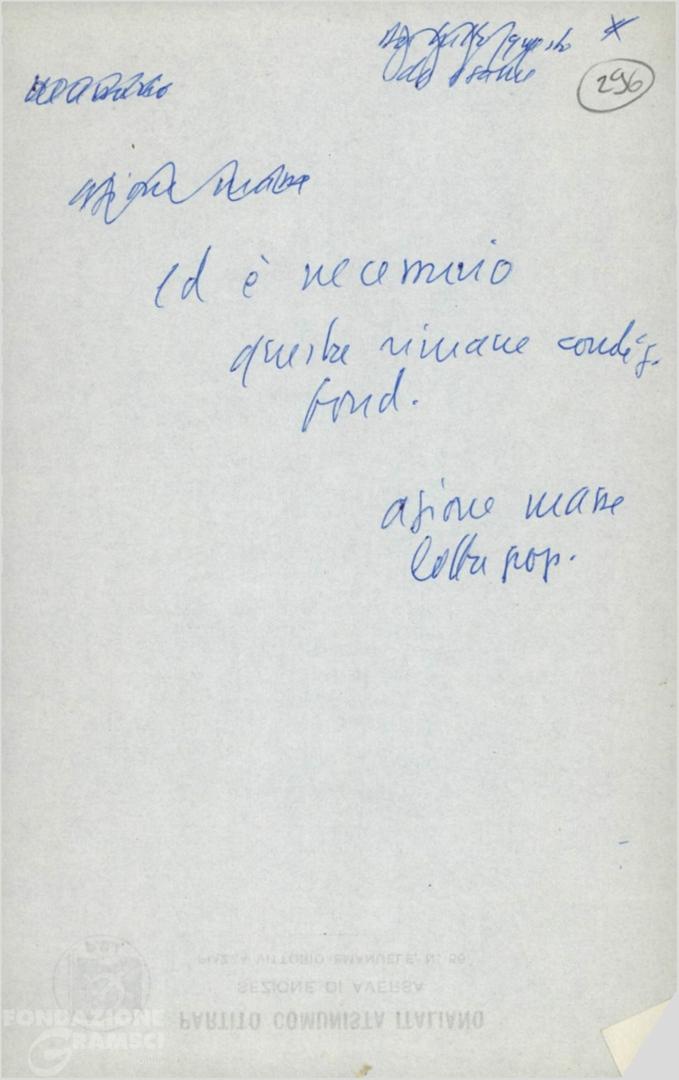 296
azione masse
ed è necessario
questa rimane condiz.
fond.
azione masse
lotta pop.
PIAZZA VITTORIO EMANUELE, N. 59
SEZIONE DI AVERSA
PARTITO COMUNISTA ITALIANO
FONDAZIONE
GRAMSCI